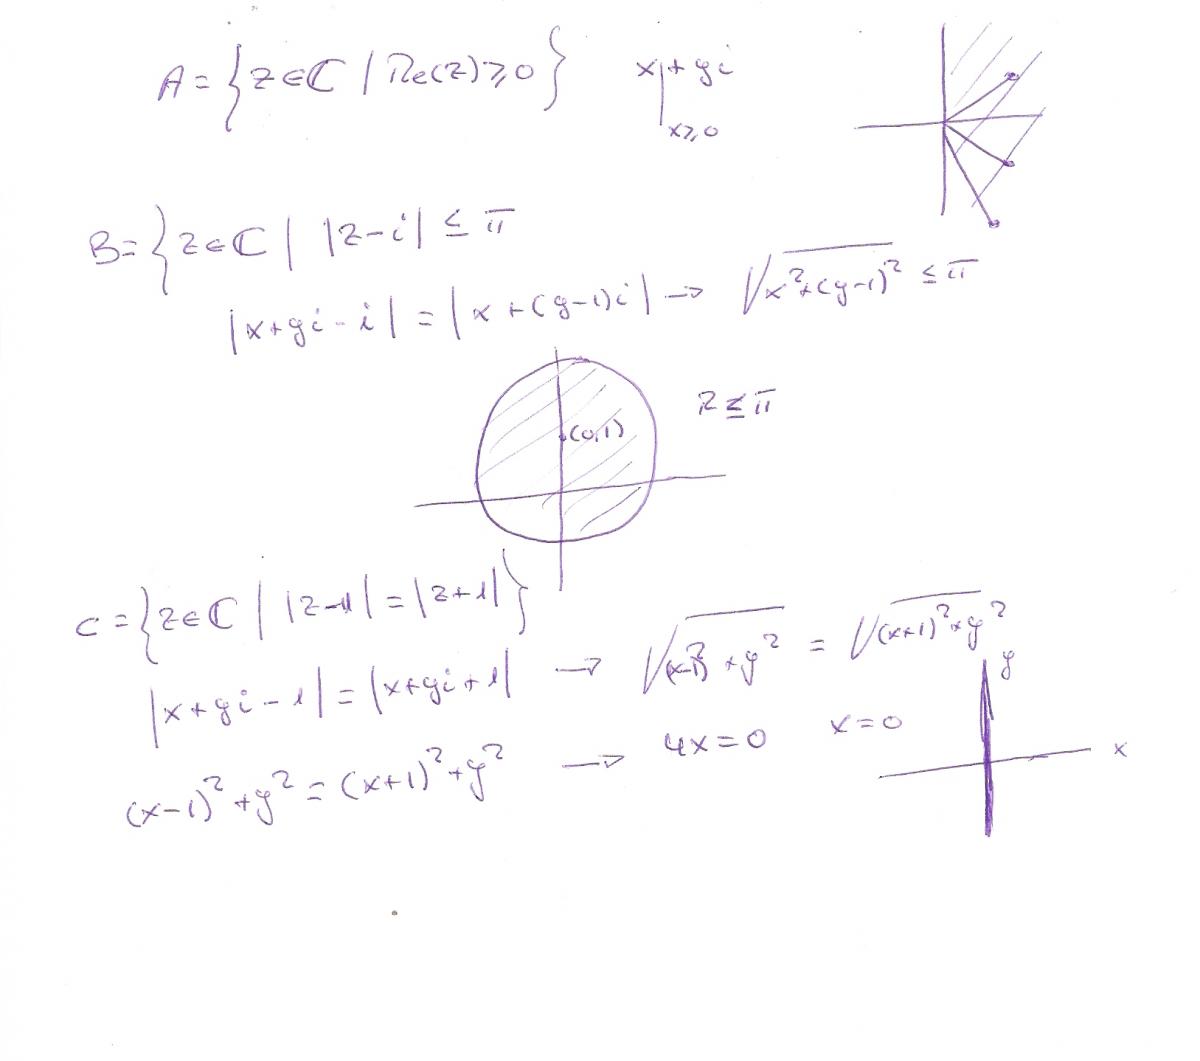 A = {z∈ℂ / Re(z)⩾0} x + yi
x⩾0
B = {z∈ℂ | |z-i| ≤ π
|x+yi-i| = |x+(y-1)i| → √x²+(y-1)² ≤ π
R ≤ π
(0,1)
C = {z∈ℂ | |z-1| = |z+1|}
|x+yi-1| = |x+yi+1| → √(x-1)²+y² = √(x+1)²+y²
y
(x-1)²+y² = (x+1)²+y² → 4x=0 x=0
x